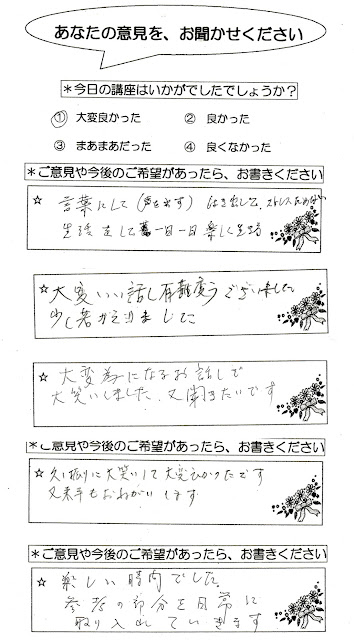 あなたの意見を、お聞かせください
*今日の講座はいかがでしたでしょうか?
① 大変良かった ② 良かった
③ まあまあだった ④ 良くなかった
*ご意見や今後のご希望があったら、お書きください
☆ 言葉にして(声を出す) はき出して、ストレスためない
生活をして 一日一日楽しく生活
☆ 大変いい話し有難度うございました
少し若がえりました
☆ 大変為になるお話しで
大笑いしました、又聞きたいです
*ご意見や今後のご希望があったら、お書きください
☆ 久し振りに大笑いして大変よかったです
又来年もおねがいします
*ご意見や今後のご希望があったら、お書きください
☆ 楽しい時間でした
参考の部分を日常に
取り入れていきます